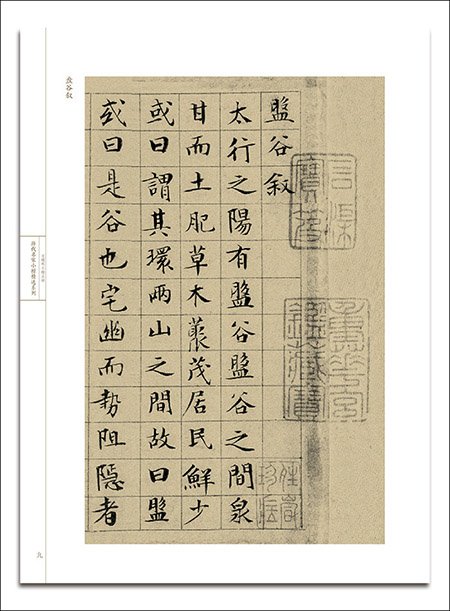 盤谷叙
太行之陽有盤谷盤谷之間泉
甘而土肥草木藂茂居民鮮少
或曰謂其環兩山之間故曰盤
或曰是谷也宅幽而勢阻隱者
盘谷叙
历代名家小楷精选系列
九